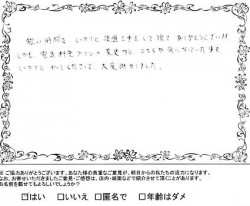 短い時間で いろいろと 设置工事をして頂き ありがとうございました
しかも、電気料金プランの変更など、こちらが気になっていた事も
いろいろと教えてくださって、大変助かりました。
ご協力ありがとうございます。あなた様の貴重なご意見が、明日からの私たちの活力になります。
なお、お寄せいただきましたご意見・ご感想は、店内・紙面などで紹介させて頂くことがあります。
お名前を載せてもよろしいでしょうか？
□はい □いいえ □匿名で □年齢はダメ